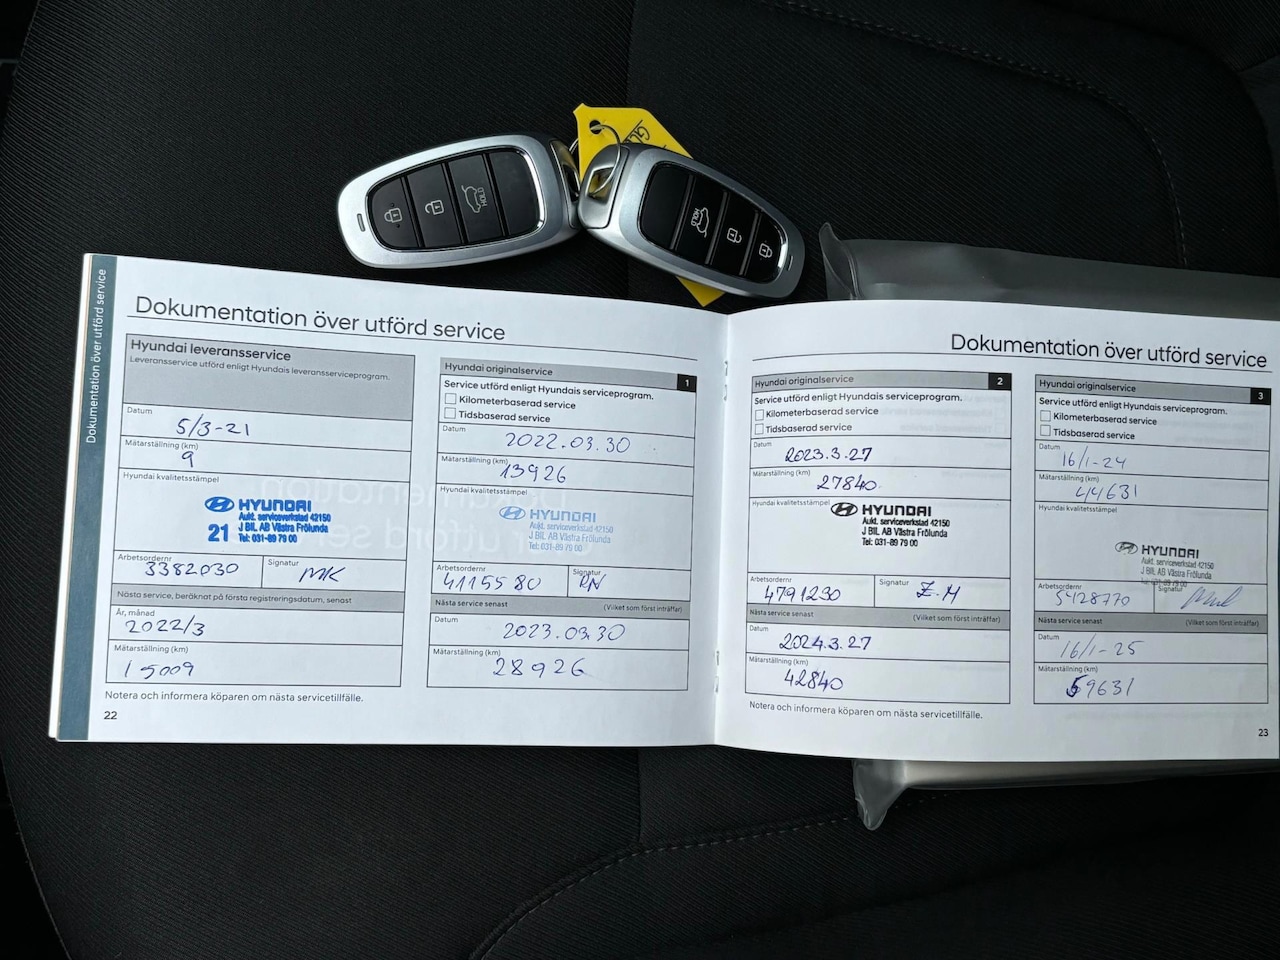 HOLD
HOLD
Dokumentation över utförd service
Dokumentation över utförd service
Hyundai leveransservice
Leveransservice utförd enligt Hyundais leveransserviceprogram.
Datum
5/3-21
Mätarställning (km)
9
Hyundai kvalitetsstämpel
HYUNDAI
Aukt. serviceverkstad 42150
21 J BIL AB Västra Frölunda
Tel: 031-89 79 00
Arbetsordernr
3382030
Signatur
MK
Nästa service, beräknat på första registreringsdatum, senast
År, månad
2022/3
Mätarställning (km)
15009
Notera och informera köparen om nästa servicetillfälle.
22
Hyundai originalservice
1
Service utförd enligt Hyundais serviceprogram.
Kilometerbaserad service
Tidsbaserad service
Datum
2022.03.30
Mätarställning (km)
13926
Hyundai kvalitetsstämpel
HYUNDAI
Aukt. serviceverkstad 42150
J BIL AB Västra Frölunda
Tel: 031-89 79 00
Arbetsordernr
4115580
Signatur
RN
Nästa service senast (Vilket som först inträffar)
Datum
2023.03.30
Mätarställning (km)
28926
Dokumentation över utförd service
Hyundai originalservice
2
Service utförd enligt Hyundais serviceprogram.
Kilometerbaserad service
Tidsbaserad service
Datum
2023.3.27
Mätarställning (km)
27840
Hyundai kvalitetsstämpel
HYUNDAI
Aukt. serviceverkstad 42150
J BIL AB Västra Frölunda
Tel: 031-89 79 00
Arbetsordernr
4791230
Signatur
Z.H
Nästa service senast (Vilket som först inträffar)
Datum
2024.3.27
Mätarställning (km)
42840
Notera och informera köparen om nästa servicetillfälle.
Hyundai originalservice
3
Service utförd enligt Hyundais serviceprogram.
Kilometerbaserad service
Tidsbaserad service
Datum
16/1-24
Mätarställning (km)
44631
Hyundai kvalitetsstämpel
HYUNDAI
Aukt. serviceverkstad 42150
J BIL AB Västra Frölunda
Tel: 031-89 79 00
Arbetsordernr
5428770
Signatur
Nästa service senast (Vilket som först inträffar)
Datum
16/1-25
Mätarställning (km)
59631
23